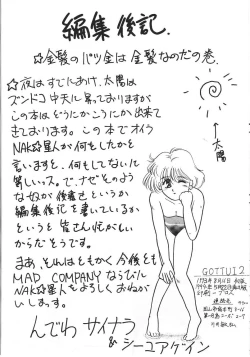 編集後記.
☆金髪のパツ金は金髪なのだの巻.
☆夜はすでにあけ、太陽は
ズンドコ中天に昇っておりますが
この本はどうにかこうにか出来て
きております。この本でオイラ
NAK☆星人が何をしたかを
言いますと、何もしてないに
等しいッス。で、ナゼそのよう
な奴が後書きというか
編集後記を書いているか
というと皆さん忙がしい
からだそうです。
まあ、それはともかく今後とも
MAD COMPANYならびに
NAK☆星人をよろしくおねがい
いします。
んでわ サイナラ
& シーユアゲイン
↑太陽
GOTTUI2
連絡先